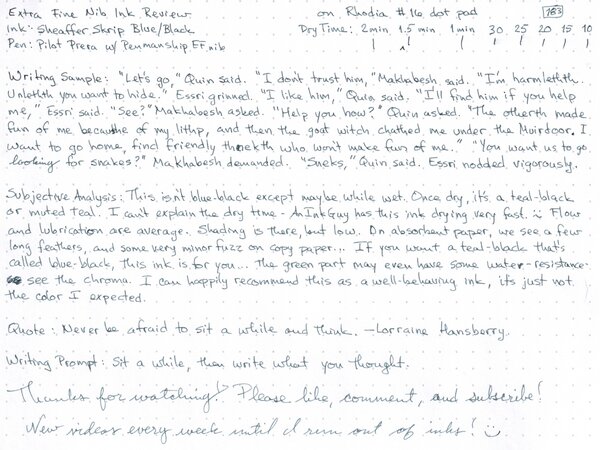 Extra Fine Nib Ink Review on Rhodia #16 dot pad 183
Ink: Sheaffer Skrip Blue/Black Dry Time: 2min 1.5 min 1min 30 25 20 15 10
Pen: Pilot Prera w/ Penmanship EF nib
Writing Sample: "Let's go," Quin said. "I don't trust him," Makhabesh said. "I'm harmleththth.
Unleththth you want to hide." Essri grinned. "I like him," Quin said. "I'll find him if you help
me," Essri said. "See?" Makhabesh asked. "Help you how?" Quin asked. "The otherth made
fun of me becauthe of my lithp, and then the goat witch chathed me under the Muirdoor. I
want to go home, find friendly thnekth who won't make fun of me." "You want us to go
looking for snakes?" Makhabesh demanded. "Sneks," Quin said. Essri nodded vigorously.
Subjective Analysis: This isn't blue-black except maybe while wet. Once dry, it's a teal-black
or muted teal. I can't explain the dry time - An Ink Guy has this ink drying very fast. :) Flow
and lubrication are average. Shading is there, but low. On absorbent paper, we see a few
long feathers, and some very minor fuzz on copy paper... If you want a teal-black that's
called blue-black, this ink is for you... The green part may even have some water-resistance-
see the chroma. I can happily recommend this as a well-behaving ink, it's just not
the color I expected.
Quote: Never be afraid to sit a while and think. —Lorraine Hansberry.
Writing Prompt: Sit a while, then write what you thought.
Thanks for watching! Please like, comment, and subscribe!
New videos every week until I run out of inks! :)